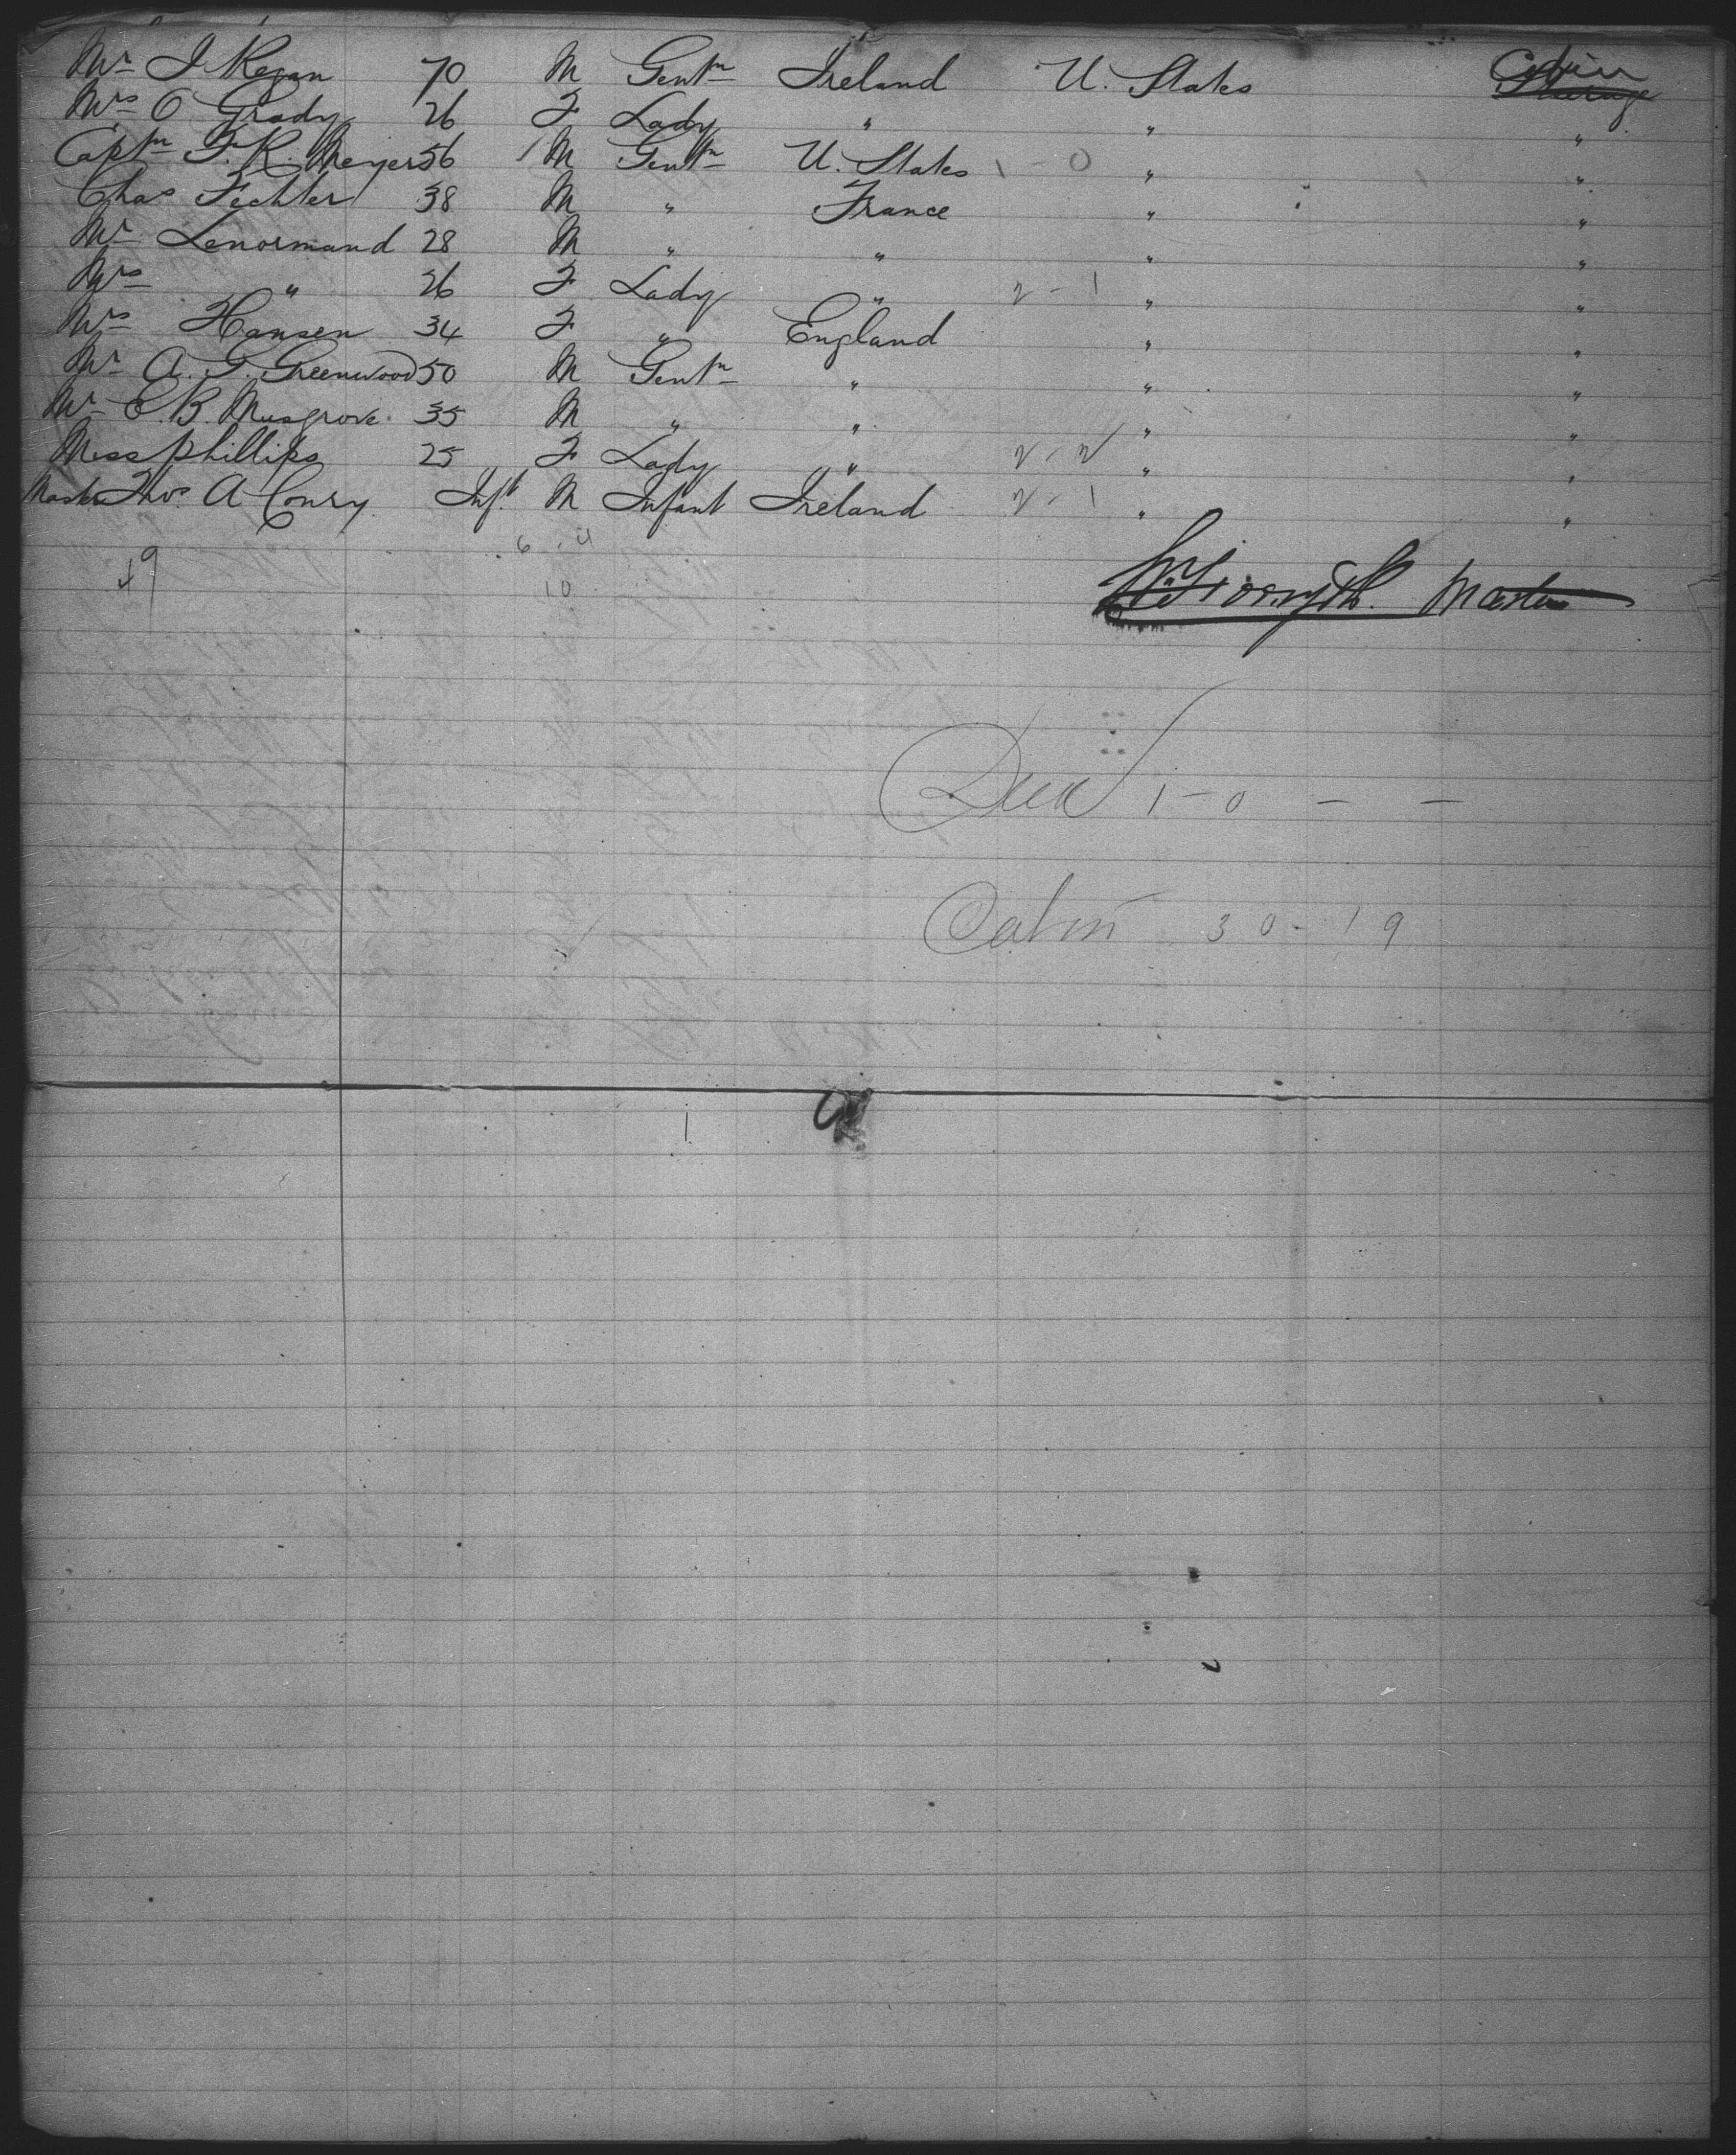 Mr J Regan 70 M Gentn Ireland U. States Cabin Steerage
Mrs O Grady 26 F Lady " " "
Captn F. R. Meyers 56 M Gentn U. States 1 - 0 " "
Chas Fechter 38 M " France " "
Mr Lenormand 28 M " " " "
Mrs " 26 F Lady " 2 - 1 " "
Mrs Hansen 34 F " England " "
Mr A. G. Greenwood 50 M Gentn " " "
Mr E. B. Musgrove 35 M " " " "
Miss Phillips 25 F Lady " 2 - 2 " "
Master Thos. A Conry Inft M Infant Ireland 2 - 1 " "
6 . 4
49 10
Forsyth. Master
1 - 0 - -
Cabin 30 - 19